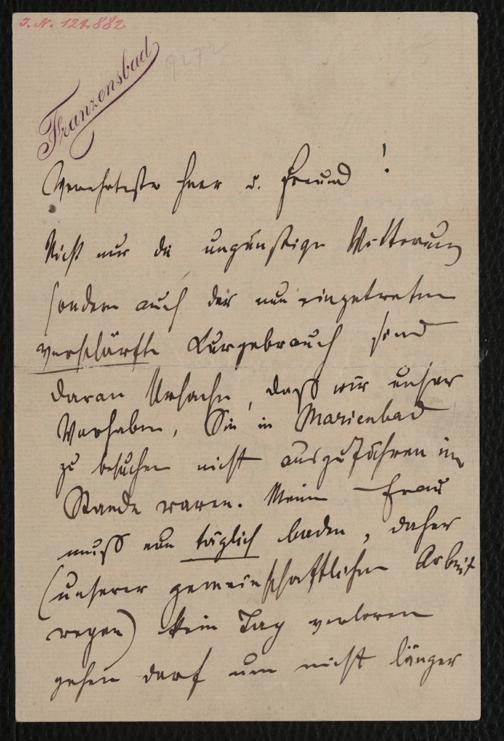 J. N. 129.882
9272
Franzensbad
Verehrtester Herr u. Freund!
Nicht nur die ungünstige Witterung
sondern auch der nun eingetretene
verschärfte Kurgebrauch sind
daran Ursache, daß wir unser
Vorhaben, Sie in Marienbad
zu besuchen nicht auszuführen im
Stande waren. Meine Frau
muß nun täglich baden, daher
(unserer gemeinschaftlichen Arbeit
wegen) kein Tag verloren
gehen darf um nicht länger